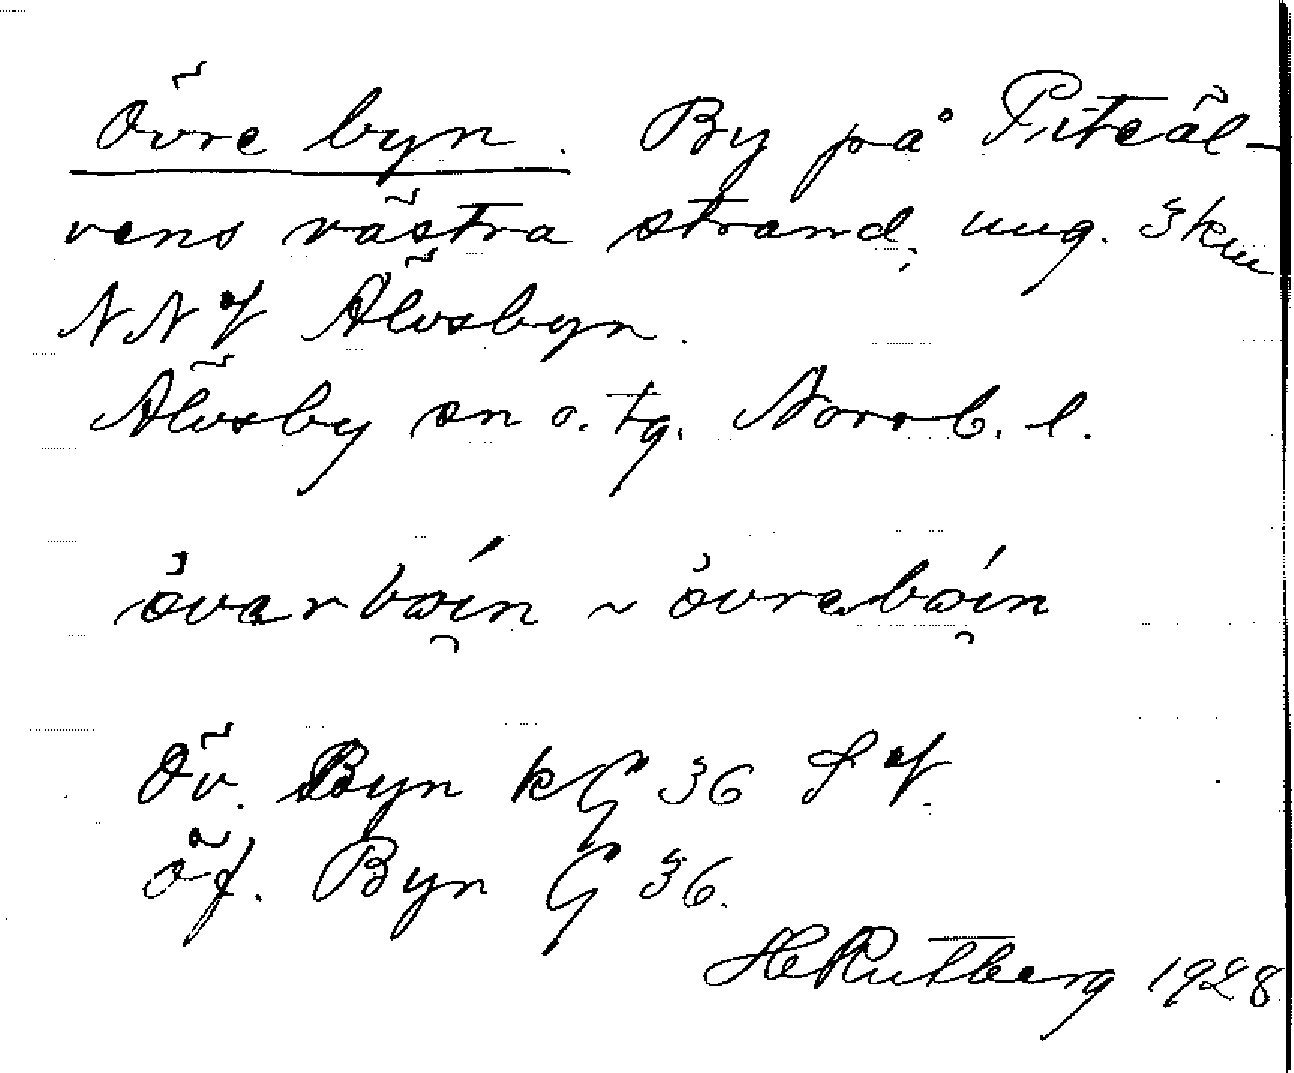 Övre byn. By på Piteäl-
vens västra strand, ung. 3 km
NNV Älvsbyn.
Älvsby sn o. tg. Norrb. l.
övarbơín ~ övrebơín
Öv. Byn kG 36 SV.
Öf. Byn G 36.
H Rutberg 1928